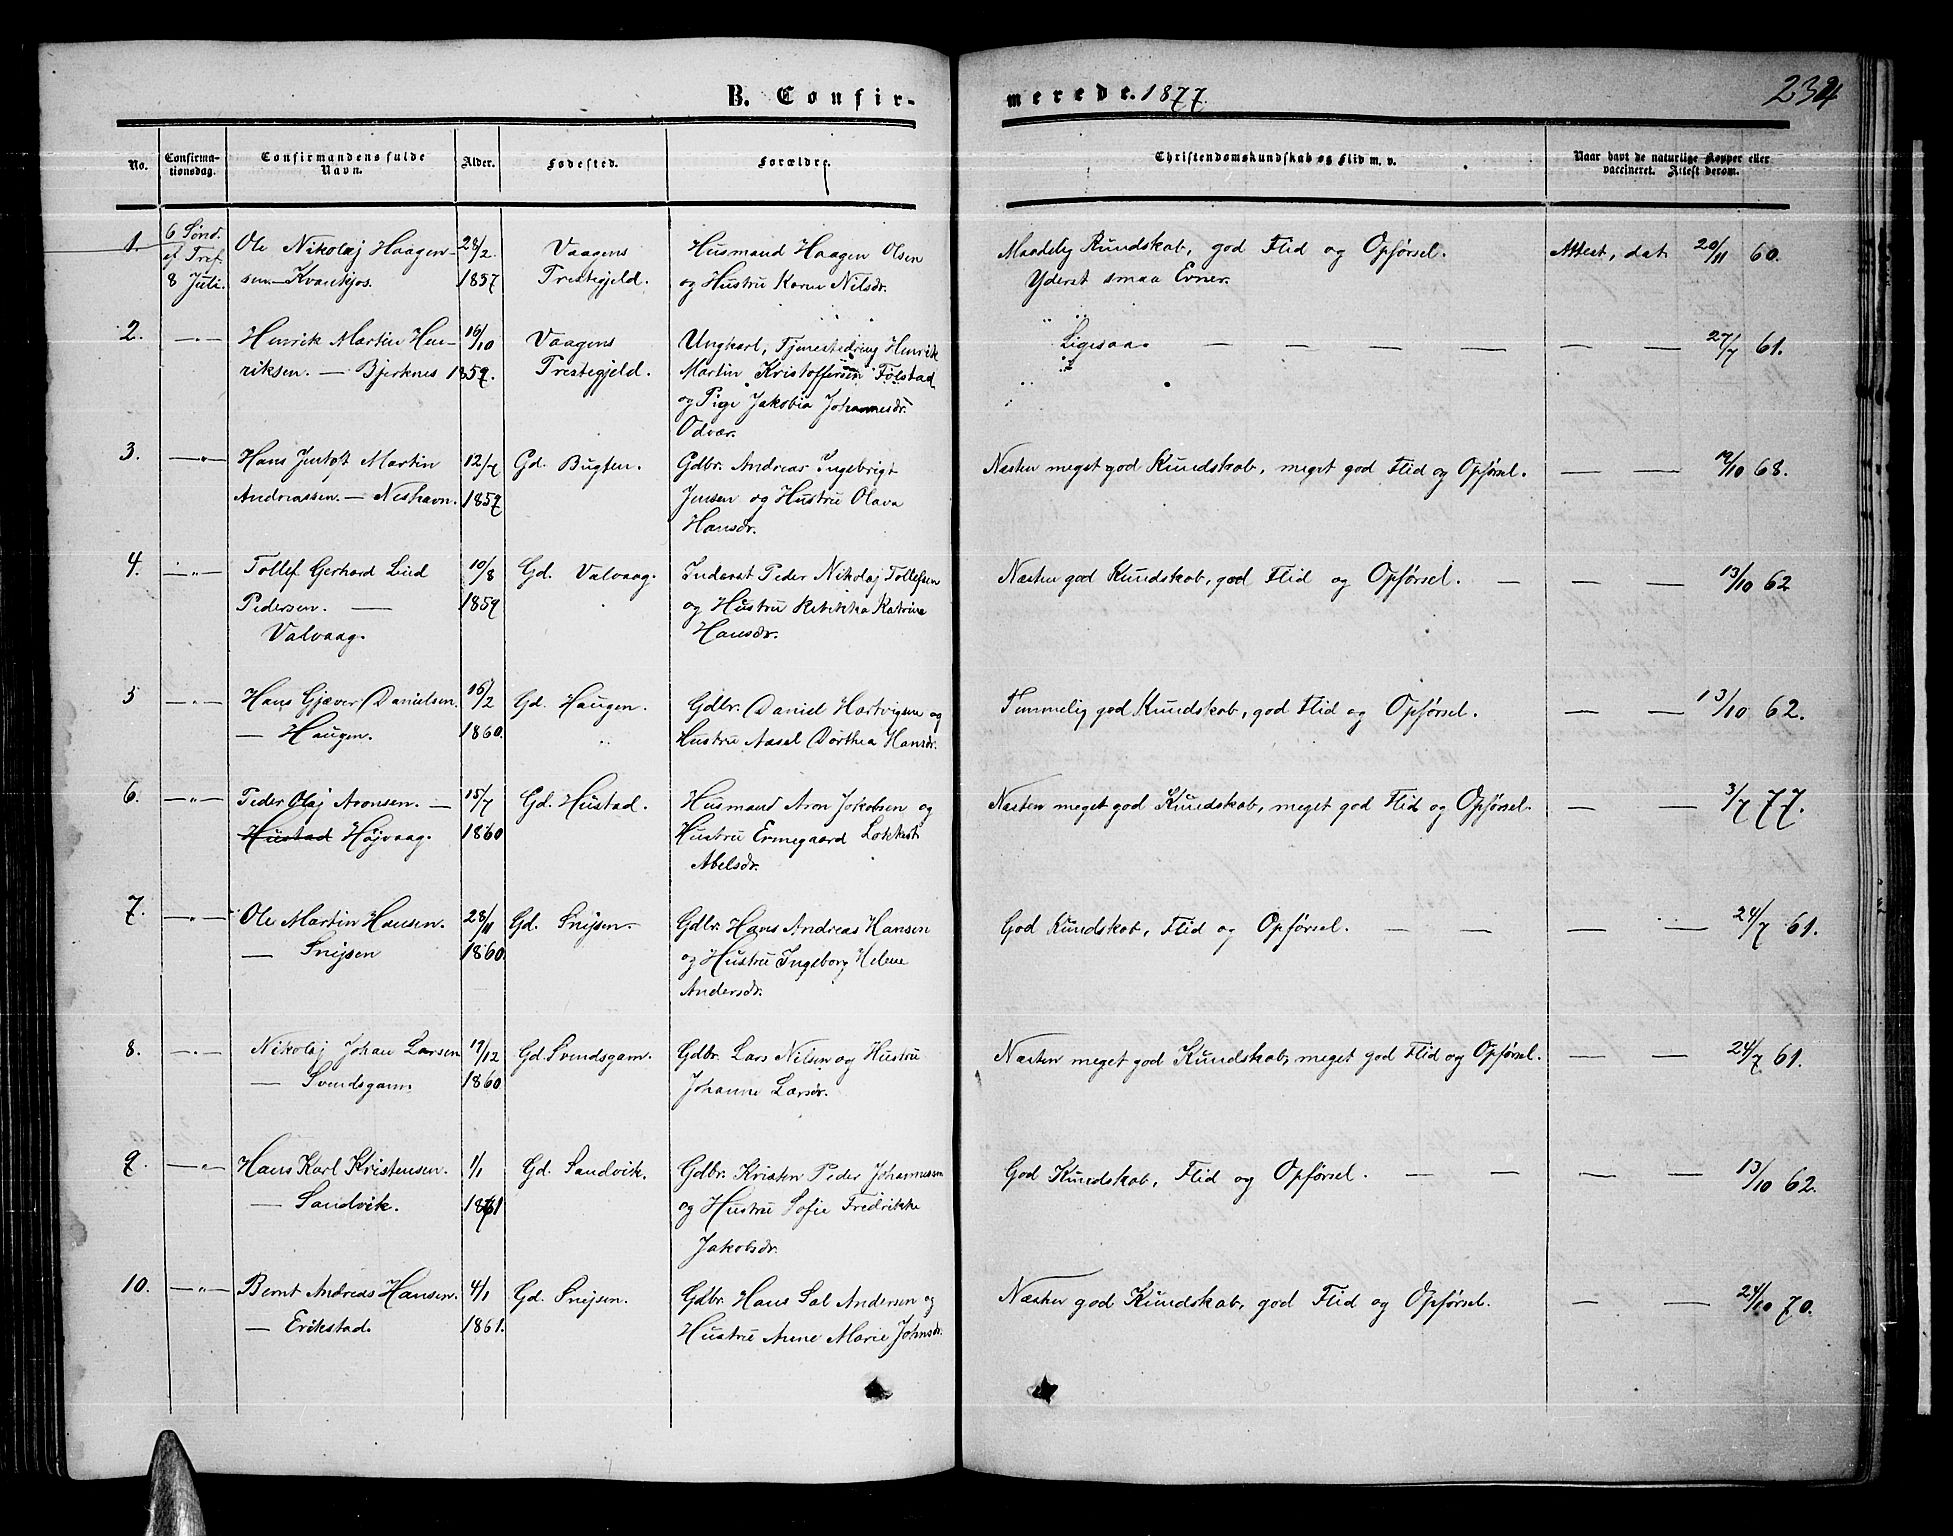 B. Confir-
merede. 1877.
234
No.
Confirma-
tionsdag.
Confirmandens fulde
Navn.
Alder.
Fødested.
Forældre.
Christendomskundskab og Flid m. v.
Naar havt de naturlige Kopper eller
vaccineret. Attest derom.
1.
6 Sønd.
ef Tref.
8 Juli.
Ole Nikolaj Haagen-
sen. — Kvankjos.
28/2.
1857
Vaagens
Prestegjeld.
Husmand Haagen Olsen
og Hustru Karen Nilsdr.
Maadelig Kundskab, god Flid og Opførsel.
Yderst smaa Evner.
Attest, dat 20/11 60.
2.
— " —
Henrik Martin Hen-
riksen. — Bjerknes
16/10
1859.
Vaagens
Prestegjeld.
Ungkarl, Tjenestedreng Henrik
Martin Kristoffersen Følstad
og Pige Jakobia Johannesdr.
Odvær.
Ligesaa. — — — — — — — 27/7 61.
3.
— " —
Hans Jentoft Martin
Andreassen. — Neshavn.
12/7
1859
Gd. Bugten.
Gdbr. Andreas Ingebrigt
Jensen og Hustru Olava
Hansdr.
Næsten meget god Kundskab, meget god Flid og Opførsel. — — 19/10 68.
4.
— " —
Tollef Gerhard Lind
Pedersen. —
Valvaag.
10/8
1859
Gd. Valvaag.
Inderst Peder Nikolaj Tollefsen
og Hustru Rebekka Katrine
Hansdr.
Næsten god Kundskab, god Flid og Opførsel. — — — 13/10 62
5
— " —
Hans Gjæver Danielsen.
— Haugen.
16/2
1860.
Gd. Haugen.
Gdbr. Daniel Hartvigsen og
Hustru Assel Dorthea Hansdr.
Temmelig god Kundskab, god Flid og Opførsel. — — 13/10 62.
6.
— " —
Peder Olaj Aronsen. —
Hustad Højvaag.
15/7
1860
Gd. Hustad.
Husmand Aron Jakobsen og
Hustru Ermegaard
Abelsdr.
Næsten meget god Kundskab, meget god Flid og Opførsel. — — 3/7 77.
7.
— " —
Ole Martin Hansen.
— Snejsen
28/11
1860.
Gd. Snejsen.
Gdbr. Hans Andreas Hansen
og Hustru Ingeborg Helene
Andersdr.
God Kundskab, Flid og Opførsel. — — — — 24/7 61.
8.
— " —
Nikolaj Johan Larsen
— Svendsgam.
19/12
1860
Gd. Svendsgam.
Gdbr. Lars Nilsen og Hustru
Johanne Larsdr.
Næsten meget god Kundskab, meget god Flid og Opførsel. — — 24/7 61.
9.
— " —
Hans Karl Kristensen.
— Sandvik.
1/1
1861
Gd. Sandvik.
Gdbr. Kristen Peder Johannessen
og Hustru Sofie Fredrikke
Jakobsdr.
God Kundskab, Flid og Opførsel. — — — — 13/10 62.
10.
— " —
Bernt Andreas Hansen.
— Erikstad.
4/1
1861.
Gd. Snejsen.
Gdbr. Hans Sal Andersen og
Hustru Anne Marie Johnsdr.
Næsten god Kundskab, god Flid og Opførsel. — — 24/10 70.